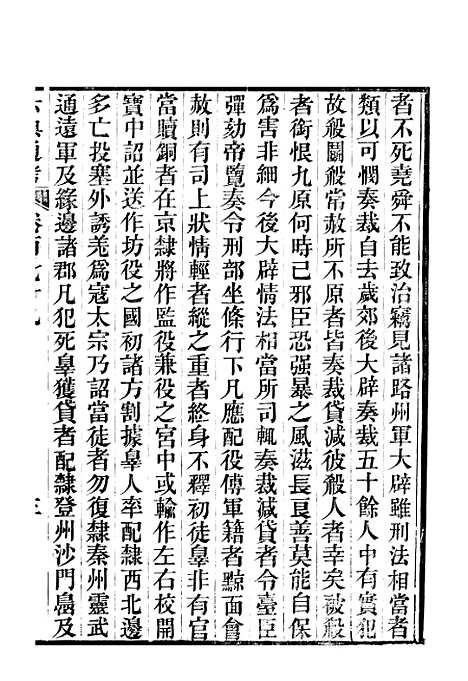 者不死堯舜不能致治竊見諸路州軍大辟雖刑法相當者
類以可憫奏裁自去歲郊後大辟奏裁五十餘人中有實犯
故殺鬭殺常赦所不原者皆奏裁貸減彼殺人者幸矣被殺
者銜恨九原何時已邪臣恐强暴之風滋長良善莫能自保
爲害非細今後大辟情法相當所司輒奏裁減貸者令臺臣
彈劾帝覽奏令刑部坐條行下凡應配役傅軍籍者黥面會
赦則有司上狀情輕者縱之重者終身不釋初徒辠非有官
當贖銅者在京隸將作監役兼役之宮中或輸作左右校開
寶中詔並送作坊役之國初諸方割據辠人率配隸西北邊
多亡投塞外誘羗爲寇太宗乃詔當徒者勿復隸秦州靈武
通遠軍及緣邊諸郡凡犯死辠獲貸者配隸登州沙門島及
六典通考 卷百七十九 三